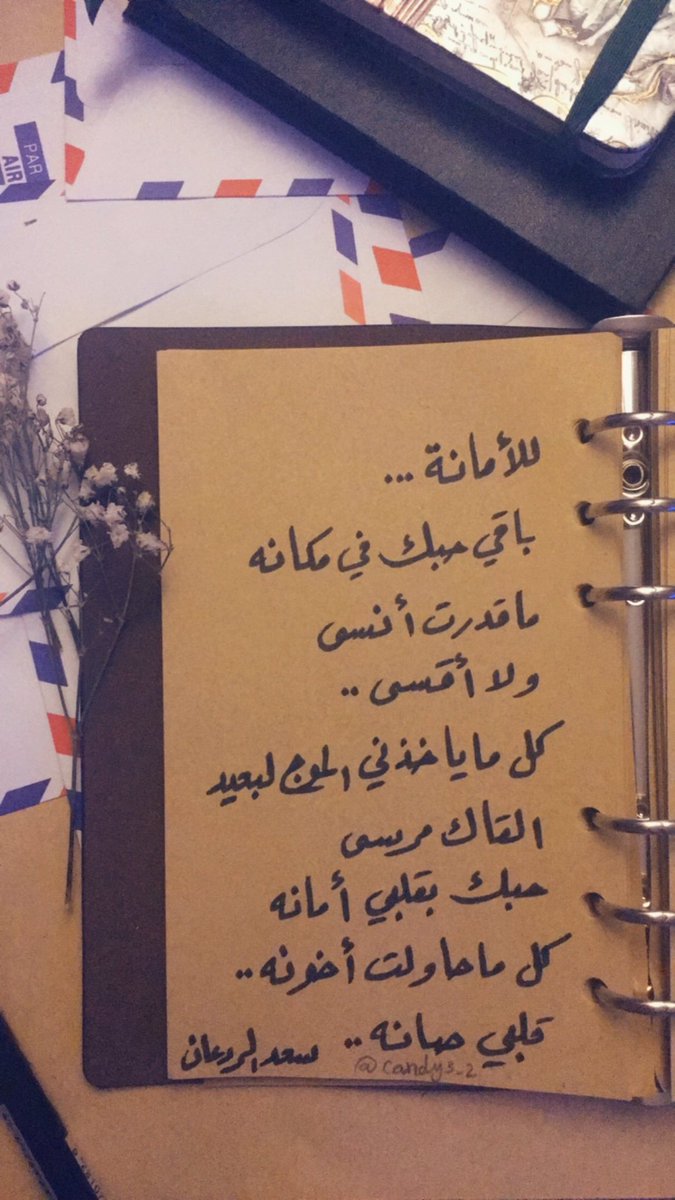 PAR
AIR
للأمانة ...
باقي حبك في مكانه
ماقدرت أنسى
ولا أقسى ..
كل ماياخذني الموج لبعيد
القاك مرسى
حبك بقلبي أمانه
كل ماحاولت أخونه ..
قلبي صانه .. سعد الردعان
@candys_2